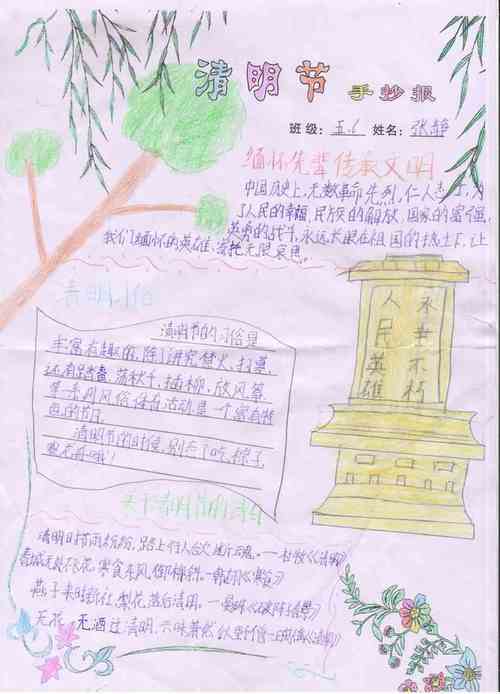 清明节 手抄报
班级:五.6 姓名:张静
缅怀先辈 传承文明
中国历史上,无数革命先烈,仁人志士,为
了人民的幸福,民族的解放,国家的富强,
英勇的战斗,永远长眠在祖国的热土下,让
我们缅怀的英雄,寄托无限哀思。
清明习俗
清明节的习俗是
丰富有趣的,除了讲究禁火、扫墓,
还有踏青、荡秋千、插柳、放风筝
等一系列风俗体育活动是一个富有特
色的节日
清明节的时候,别忘了吃粽子
哦!
永垂不朽
人民英雄
关于清明节的诗句
清明日时雨纷纷,路上行人欲断魂。—杜牧《清明》
春城无处不飞花,寒食东风御柳斜。—韩翃《寒食》
燕子来时新社,梨花落后清明。—晏殊《破阵子》
无花无酒过清明,兴味萧然似野僧—王禹偁《清明》